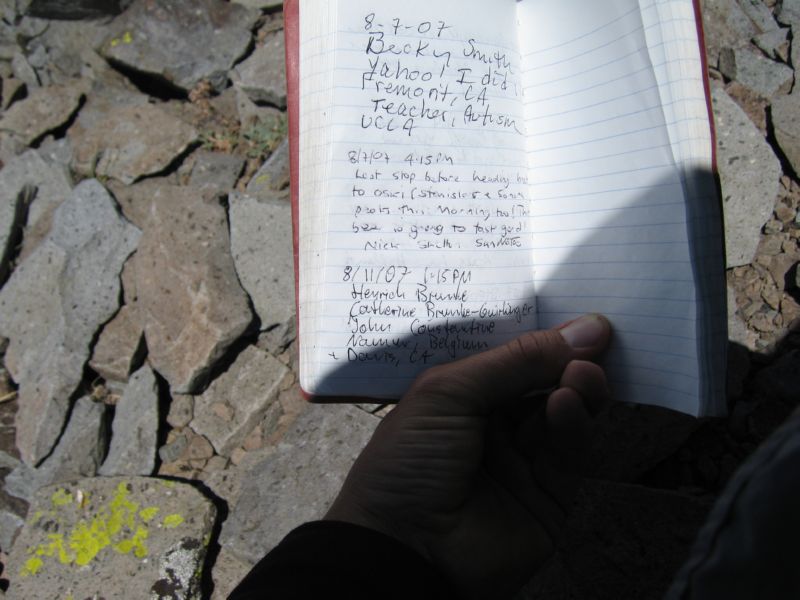 8-7-07
Becky Smith
Yahoo! I did
Fremont, CA
Teacher, Autism
UCLA
8/7/07 4:15PM
Last stop before heading
to (Stanislaus & Sonora
peaks this morning, too!
beer is going to taste good!
Nick Smith,
8/11/07 1:15PM
Heyrich Brunke
Catherine Brunke-
John Constantine
Namur, Belgium
+ Davis, CA